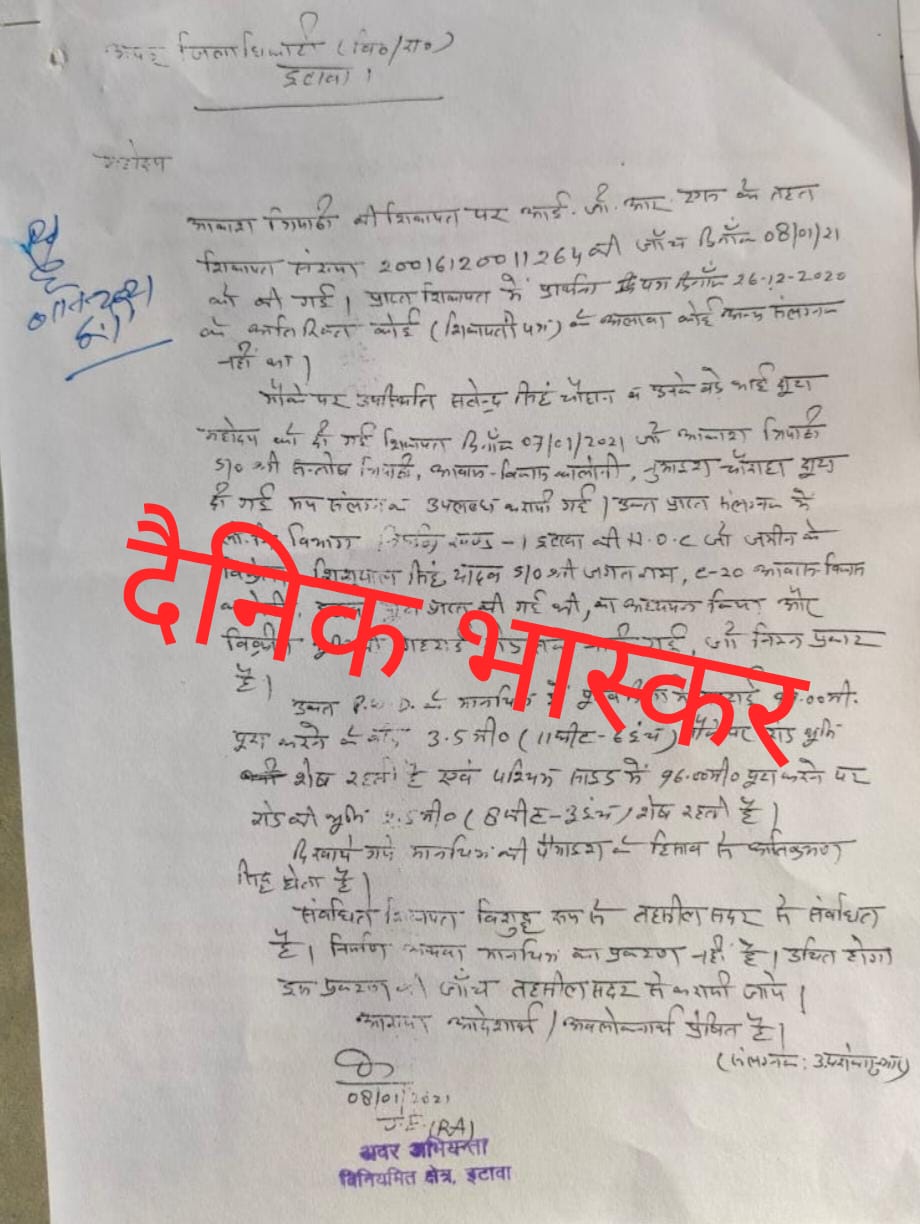 अपर जिलाधिकारी (वि०/रा०)
इटावा।
महोदय
आकाश त्रिपाठी की शिकायत पर आई. जी. आर. एस. के तहत
शिकायत संख्या 20016120011264 की जाँच दिनाँक 08/01/21
को की गई। प्राप्त शिकायत में प्रार्थना पत्र दिनाँक 26-12-2020
के अतिरिक्त कोई (शिकायती पत्र) के अलावा कोई अन्य संलग्नक
नहीं था।
मौके पर उपस्थिति सत्येन्द्र सिंह चौहान व उनके बड़े भाई द्वारा
महोदय को दी गई शिकायत दिनाँक 07/01/2021 जो आकाश त्रिपाठी
S/O श्री सन्तोष त्रिपाठी, आवास-विकास कालोनी, नुमाइश चौराहा द्वारा
दी गई मय संलग्नक उपलब्ध करायी गई। उक्त प्राप्त संलग्नक में
विभाग खण्ड-1 इटावा की N.O.C जो जमीन के
शिशुपाल सिंह यादव S/O श्री जगत राम, C-20 आवास विकास
प्राप्त की गई थी, का अध्ययन किया और
गई, जो निम्न प्रकार
है।
उक्त P.W.D. के मानचित्र में
पूरा करने के बाद 3.5 मी० (11 फीट-6 इंच) मौके पर रोड भूमि
शेष रहती है एवं पश्चिम साइड में 96.00 मी० पूरा करने पर
रोड की भूमि 2.5 मी० (8 फीट-3 इंच) शेष रहती है।
दिखाये गये मानचित्र की पैमाइश के हिसाब से अतिक्रमण
सिद्ध होता है।
संबंधित शिकायत विशुद्ध रूप से तहसील सदर से संबंधित
है। निर्माण अथवा मानचित्र का प्रकरण नहीं है। उचित होगा
इस प्रकरण की जाँच तहसील सदर से करायी जाये।
आख्या आदेशार्थ/अवलोकनार्थ प्रेषित है।
(संलग्नक: उपरोक्तानुसार)
08/01/2021
J.E. (RA)
अवर अभियन्ता
विनियमित क्षेत्र, इटावा
दैनिक भास्कर